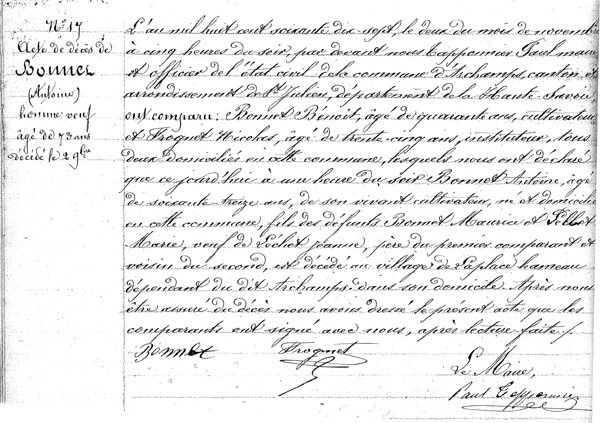 No 17
Acte de décès de
Bonnet
(Antoine)
homme veuf
âgé de 73 ans
décédé le 2 9bre
L'an mil huit cent soixante dix-sept, le deux du mois de novembre
à cinq heures du soir, par devant nous Tapponnier Paul maire
et officier de l'état civil de la commune d'Archamps, canton et
arrondissement de St Julien, département de la Haute-Savoie,
ont comparu: Bonnet Benoit, âgé de quarante ans, cultivateur
et Frognet Nicolas, âgé de trente cinq ans, instituteur, tous
deux domiciliés en cette commune, lesquels nous ont déclaré
que ce jourd'hui à une heure du soir Bonnet Antoine, âgé
de soixante treize ans, de son vivant cultivateur, né et domicilié
en cette commune, fils des défunts Bonnet Maurice et
Marie, veuf de Lochet Jeanne, père du premier comparant et
voisin du second, est décédé au village de Laplace hameau
dépendant du dit Archamps dans son domicile. Après nous
être assuré du décès nous avons dressé le présent acte que les
comparants ont signé avec nous, après lecture faite./.
Bonnet Frognet
Le Maire,
Paul Tapponnier